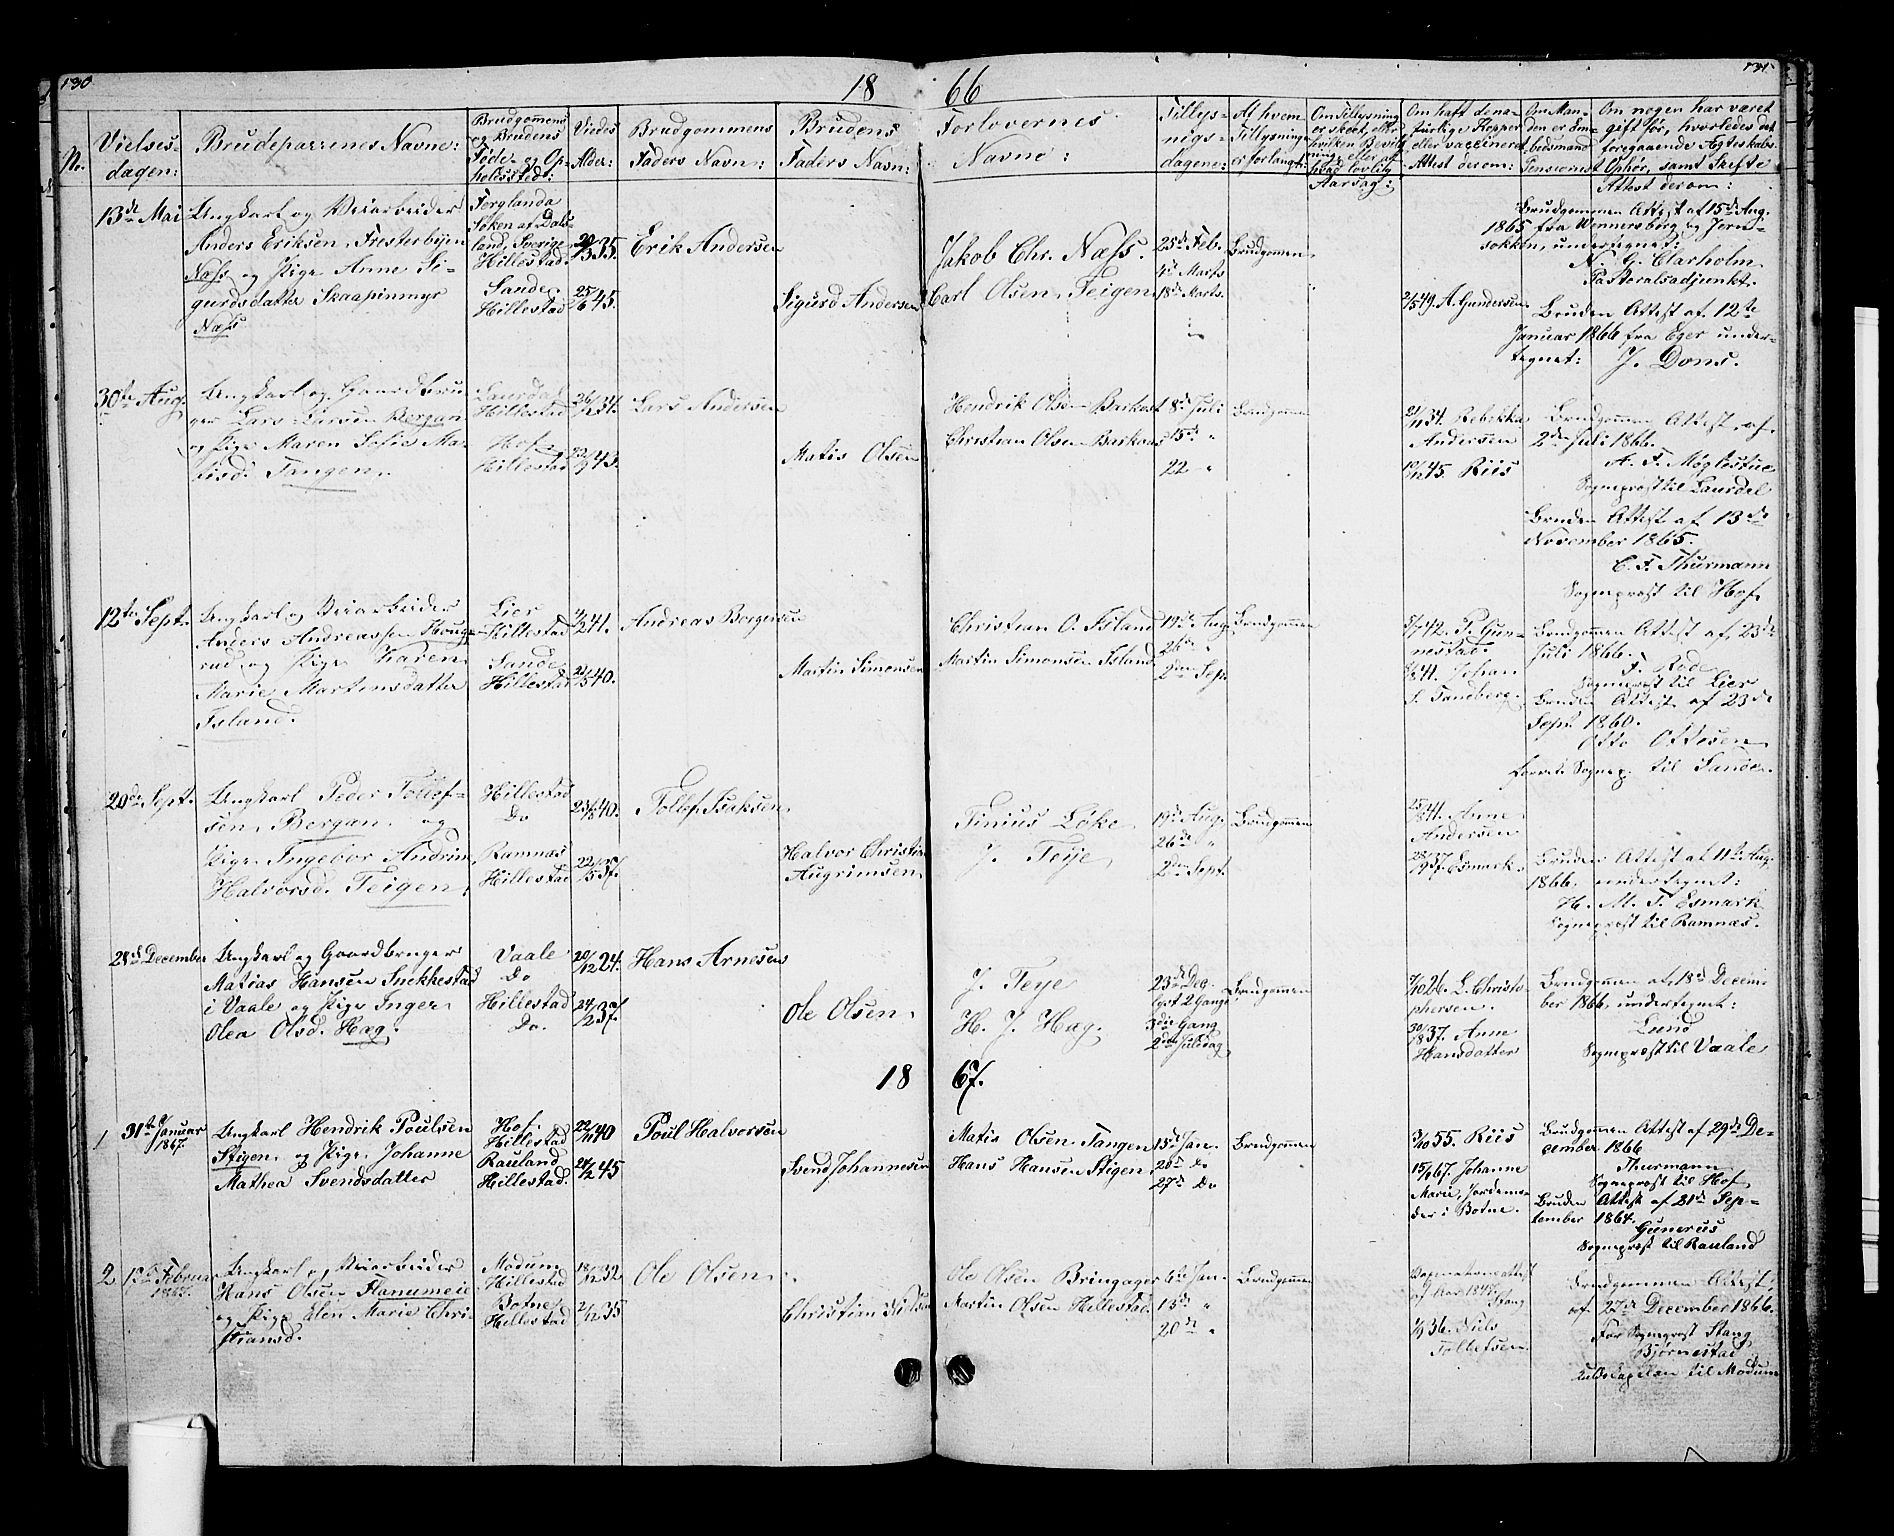 130
18 66
131
No.
Vielses-
dagen:
Brudeparrenes Navne:
Brudgommens
og Brudens
Føde- og Op-
holdsstedt:
Viedes
Alder:
Brudgommens
Faders Navn:
Brudens
Faders Navn:
Forlovernes
Navne:
Tillys-
nigs-
dagene:
Af hvem
Tillysning
er forlangt:
Om Tillysning
er skeet, eller
hvilken Bevill-
ning, eller af
hvad lovlig
Aarsag:
Om haft de na-
turlige Kopper
eller vaccineret
Attest derom:
Om Man-
den er Am-
bedsmand
Pensionist
Om nogen har været
gift før, hvorledes det
foregaaende Ægteskabs
Ophør, samt Skifte
Attest derom:
13de Mai
Ungkarl og Veiarbeider
Anders Eriksen Fresterbyen
Næss og Pige Anne Si-
gurdsdatter Skaapinmyr
Næss
Ferglanda
Søken af Dals-
land, Sverige
Hillestad.
Sande
Hillestad
35.
25/6 45.
Erik Andersen
Sigurd Andersen
Jakob Chr. Næss.
Carl Olsen Teigen
25de Feb.
4de Marts
18de Marts.
Brudgommen
2/5 49. A. Gundersen
Brudgommen Attest af 15de Aug.
1865 fra Wennersborg og Jern-
sokkn, undertegnet:
N. G. Clarholm
Pastoralsadjunkt.
Bruden Attest af 12te
Januar 1866 fra Eger under-
tegnet: J. Dons.
30te Aug.
Ungkarl og Gaardbru-
ger Lars Larsen Bergan
og Pige Maren Sofie Ma-
tisd. Tangen.
Laurdal
Hillestad
Hof
Hillestad
34.
43.
Lars Andersen
Matis Olsen
Hendrik Olsen Barkost
Christian Olsen Barkaas
8de Juli
15de "
22 "
Brudgommen
34. Rebekka
Andersen
10/12 45. Riis
Brudgommen Attest af
2den Juli 1866.
A. F. Møglestue
Sogneprest til Laurdal
Bruden Attest af 13de
November 1865.
C. F. Thurmann
Sogneprest til Hof.
12te Sept.
Ungkarl og Veiarbeider
Anders Andreassen Houge-
rud og Pige Karen
Marie Martinsdatter
Island.
Lier
Hillestad
Sande
Hillestad
41.
40.
Andreas Borgersen
Martin Simonsen
Christian O. Island
Martin Simonsen Island
19de Aug.
26de "
2den Sep.
Brudgommen
42. P. Gun-
nestad.
41. Johan
S. Tandberg.
Brudgommen Attest af 23de
Juli 1866.
F. Rode
Sogneprest til Lier
Bruden Attest af 23de
Sept. 1860.
Otto Ottesen
forvt. Sognep. til Sande.
20de Sept.
Ungkarl Peder Tollef-
sen Bergan og
Pige Ingebor Andrine
Halvorsd. Teigen
Hillestad
Do
Ramnæs
Hillestad
40.
22/5 37.
Tollef Isaksen
Halvor Christian
Augrimsen
Tinius Løke
J. Teije
19de Aug.
26de "
2den Sept.
Brudgommen
41. Anne
Andersen
37. Esmark
Bruden Attest af 11te Aug.
1866, undertegnet:
H. M. T. Esmark
Sogneprest til Ramnæs.
28de December
Ungkarl og Gaardbruger
Matias Hansen Snekkestad
i Vaale og Pige Inger
Olea Olsd. Hæg.
Vaale
Do
Hillestad
Do.
20/12 24.
24/2 37.
Hans Arnesen
Ole Olsen
J. Teije
H. J. Hæg.
23de Dec.
lyst 2 Gange
3die Gang
2den Juledag
Brudgommen
7/10 26. L. Christo-
phersen.
37. Anne
Hansdatter
Brudgommen af 18de Decem-
ber 1866, undertegnet:
Lund
Sogneprest til Vaale
18 67.
1
31te Januar
1867.
Ungkarl Hendrik Poulsen
Stigen og Pige Johanne
Mathea Svendsdatter
Hof
Hillestad
Rauland
Hillestad.
40
45
Poul Halvorsen
Svend Johannesen
Matis Olsen Tangen
Hans Hansen Stigen
15de Jan.
20de Do
27de Do
Brudgommen
55. Riis
67. Johanne
Marie, Jordemo-
der i Botne.
Brudgommen Attest af 29de De-
cember 1866
Thurmann
Sogneprest til Hof
Bruden Attest af 21de Sep-
tember 1864.
Gunerus
Sogneprest til Rauland
2
Februar
1867.
Ungkarl og Veiarbeider
Hans Olsen Flanumeie
og Pige Elen Marie Chri-
stiansd.
Modum
Hillestad
Botne
Hillestad
18/12 32
2/12 35
Ole Olsen
Christian Nilsen
Ole Olsen Bringager
Martin Olsen Hillestad
6te Jan.
13de "
20de "
Brudgommen
Vaccinationsattest
Stang
36. Niels
Tollefsen.
Brudgommen Attest
af 27de December 1866.
For Sogneprest Stang
Bjørnestad
Kapelan til Modum